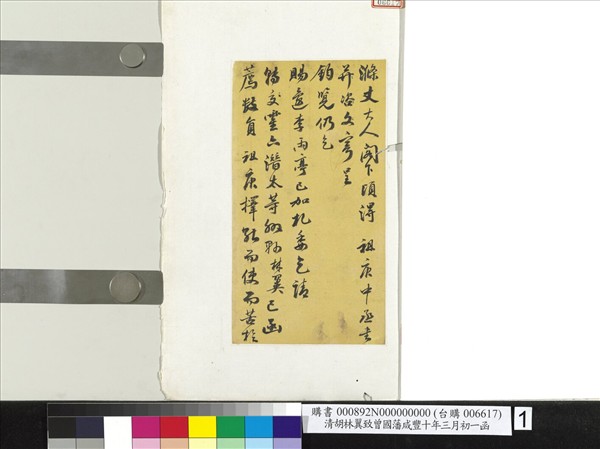 滌丈大人閣下頃得 祖庚中丞書
并咨文寄呈
鈞覽仍乞
賜還李雨亭已加札委乞請
轉交霍六潛太等林翼已函
薦數員 祖庚擇能而使而苦於
購書 000892N000000000 (台購 006617)
清胡林翼致曾國藩咸豐十年三月初一函
1